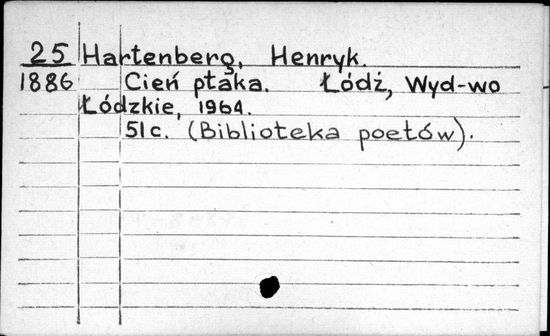 25 Hartenberg, Henryk.
1886 Cień ptaka. Łódź, Wyd-wo
Łódzkie, 1964.
51c. (Biblioteka poetów).